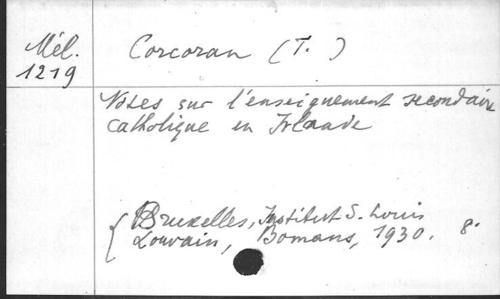 Mél. 1219
Corcoran (T.)
Notes sur l'enseignement secondaire
catholique en Irlande
Bruxelles, Institut S. Louis
Louvain, Bomans, 1930. 8°